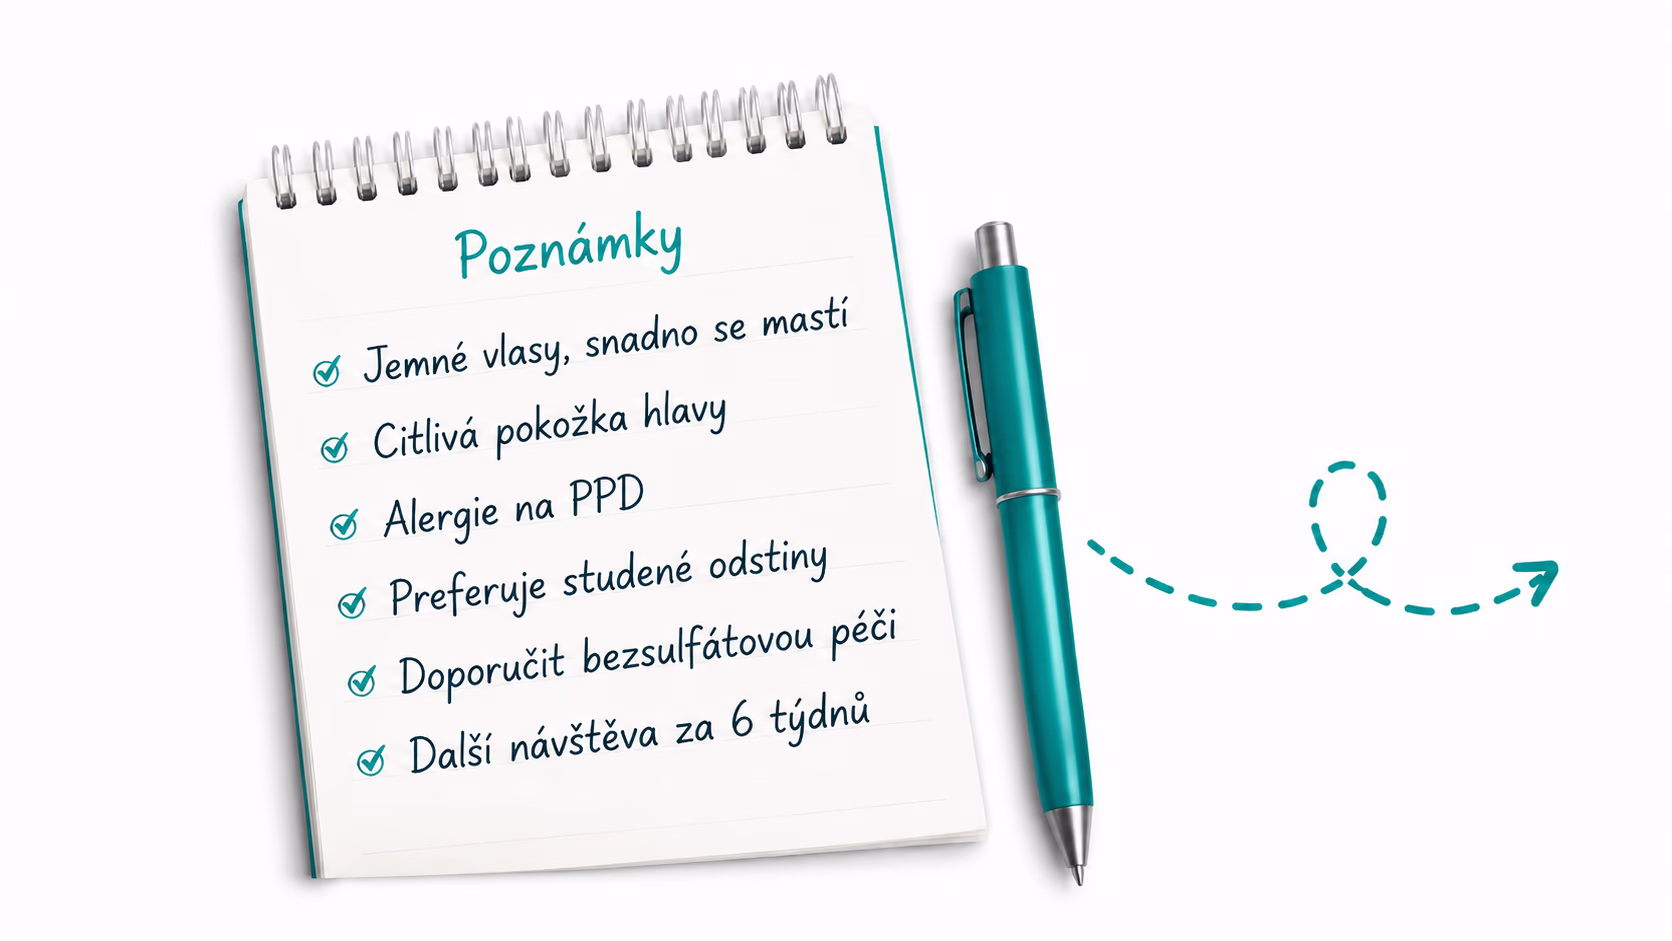 Poznámky
Jemné vlasy, snadno se mastí
Citlivá pokožka hlavy
Alergie na PPD
Preferuje studené odstiny
Doporučit bezsulfátovou péči
Další návštěva za 6 týdnů